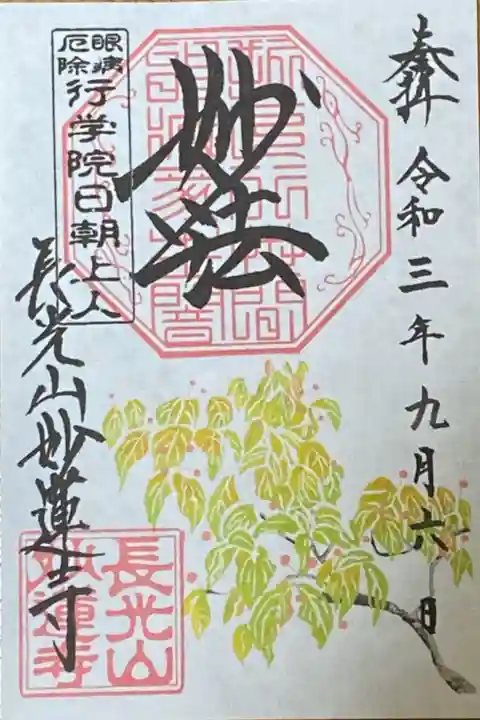 奉拝 令和三年九月六日
妙法
眼病
厄除
行学院日朝上人
長光山妙蓮寺
長光山
妙蓮寺